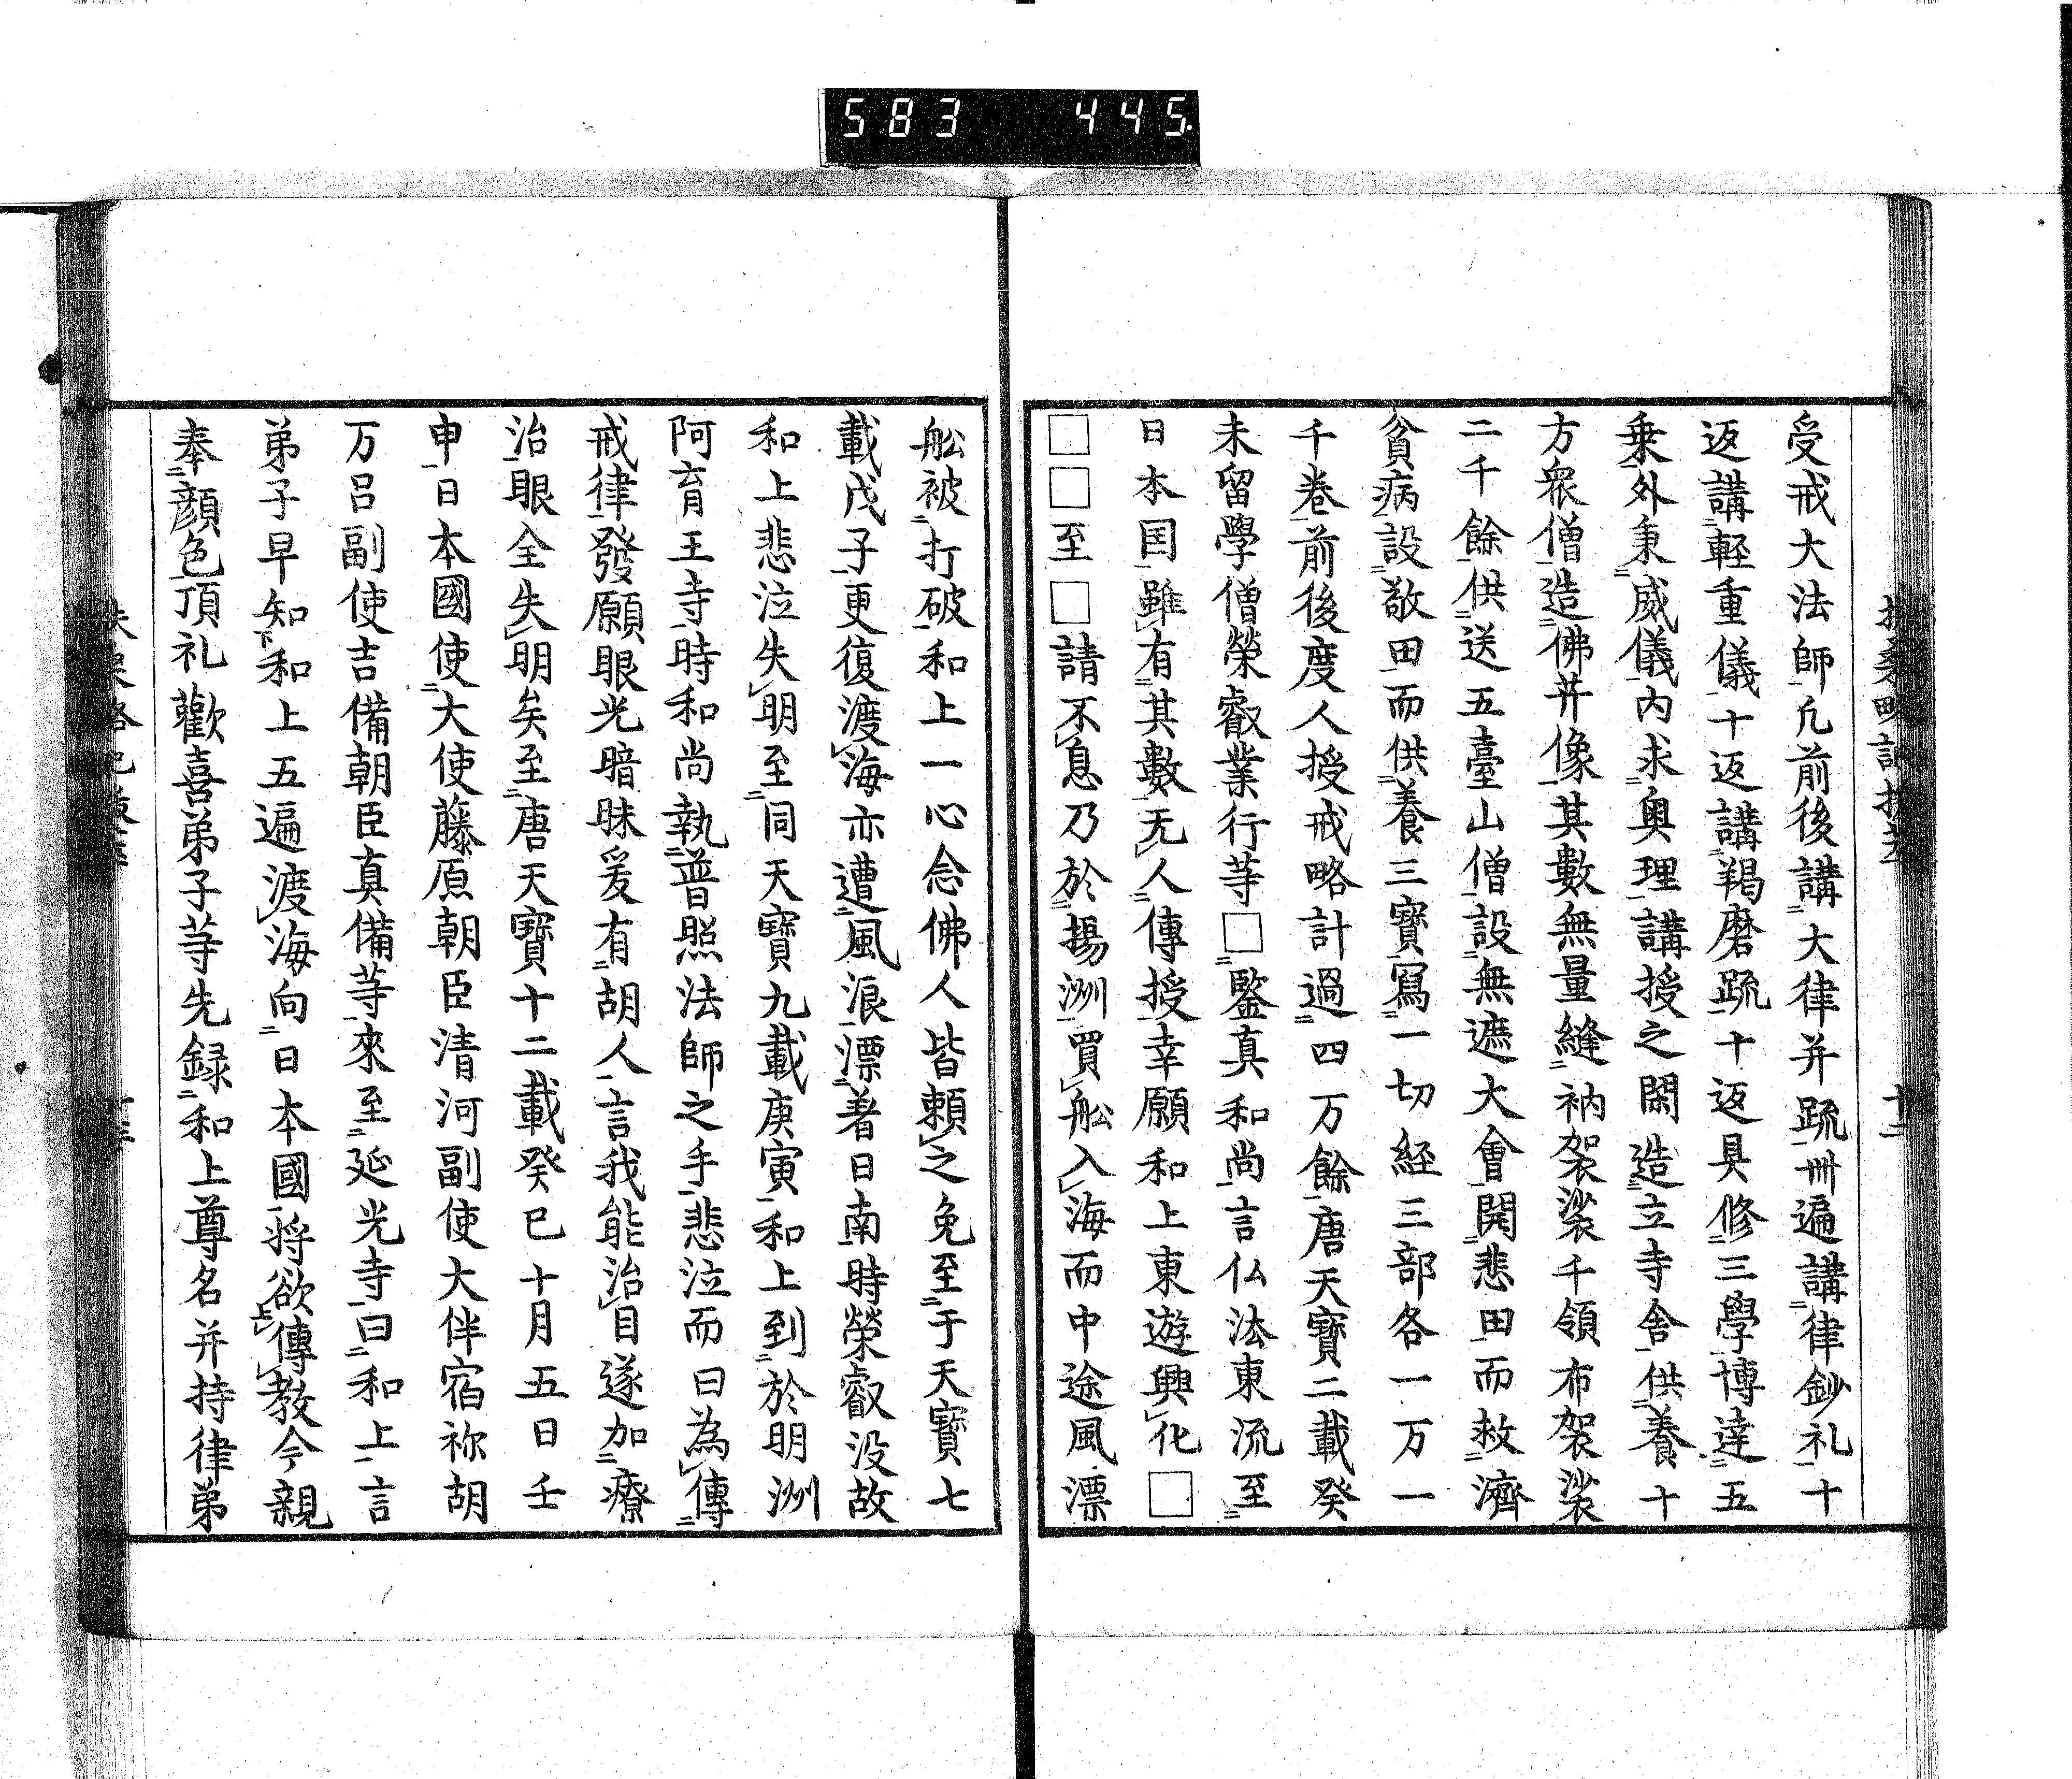 583 445.
受戒大法師凢前後講大律并疏卌遍講律鈔礼十
返講輕重儀十返講羯磨疏十返具修三學博達五
乗外秉威儀内求奥理講授之閑造立寺舎供養十
方衆僧造佛并像其數無量縫衲袈裟千領布袈裟
二千餘供送五臺山僧設無遮大會開悲田而救濟
貧病設敬田而供養三寶寫一切経三部各一万一
千巻前後度人授戒略計過四万餘唐天寳二載癸
未留學僧榮叡業行等□鑒真和尚言仏法東流至
日本国雖有其數无人傳授幸願和上東遊興化□
□□至□請不息乃於揚洲買舩入海而中途風漂
舩被打破和上一心念佛人皆頼之免至于天寳七
載戊子更復渡海亦遭風浪漂着日南時榮叡没故
和上悲泣失明至同天寳九載庚寅和上到於明洲
阿育王寺時和尚執普照法師之手悲泣而曰為傳
戒律發願眼光暗昧爰有胡人言我能治目遂加療
治眼全失明矣至唐天寳十二載癸巳十月五日壬
申日本國使大使藤原朝臣清河副使大伴宿祢胡
万呂副使吉備朝臣真備等來至延光寺曰和上言
弟子早知和上五遍渡海向日本國将欲傳教今親
奉顔色頂礼歡喜弟子等先録和上尊名并持律弟